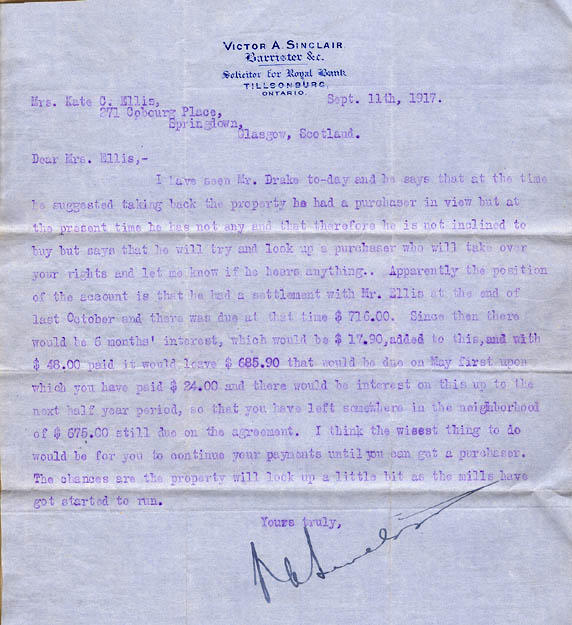 VICTOR A. SINCLAIR
Barrister &c.
Solicitor for Royal Bank
TILLSONBURG,
ONTARIO.
Mrs. Kate C. Ellis, Sept. 11th, 1917.
271 Cobourg Place,
Springdown,
Glasgow, Scotland.
Dear Mrs. Ellis,-
I have seen Mr. Drake to-day and he says that at the time
he suggested taking back the property he had a purchaser in view but at
the present time he has not any and that therefore he is not inclined to
buy but says that he will try and look up a purchaser who will take over
your rights and let me know if he hears anything.. Apparently the position
of the account is that he had a settlement with Mr. Ellis at the end of
last October and there was due at that time $ 716.00. Since then there
would be 6 months' interest, which would be $ 17.90,added to this,and with
$ 48.00 paid it would leave $ 685.90 that would be due on May first upon
which you have paid $ 24.00 and there would be interest on this up to the
next half year period, so that you have left somewhere in the neighborhood
of $ 675.00 still due on the agreement. I think the wisest thing to do
would be for you to continue your payments until you can get a purchaser.
The chances are the property will look up a little bit as the mills have
got started to run.
Yours truly,
V A Sinclair